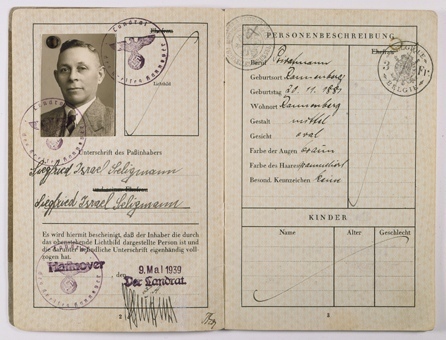 Ehefrau
Lichtbild
Unterschrift des Paßinhabers
Siegfried Israel Seligmann
und seiner Ehefrau
Siegfried Israel Seligmann
Es wird hiermit bescheinigt, daß der Inhaber die durch
das obenstehende Lichtbild dargestellte Person ist und
die darunter befindliche Unterschrift eigenhändig voll-
zogen hat.
Hannover
den 9. Mai 1939
Der Landrat
2
PERSONENBESCHREIBUNG
Ehefrau
Beruf
Geburtsort Dannenberg
Geburtstag
Wohnort Dannenberg
Gestalt mittel
Gesicht oval
Farbe der Augen braun
Farbe des Haares
Besond. Kennzeichen keine
3 Fr.
BELGIË
KINDER
Name Alter Geschlecht
3